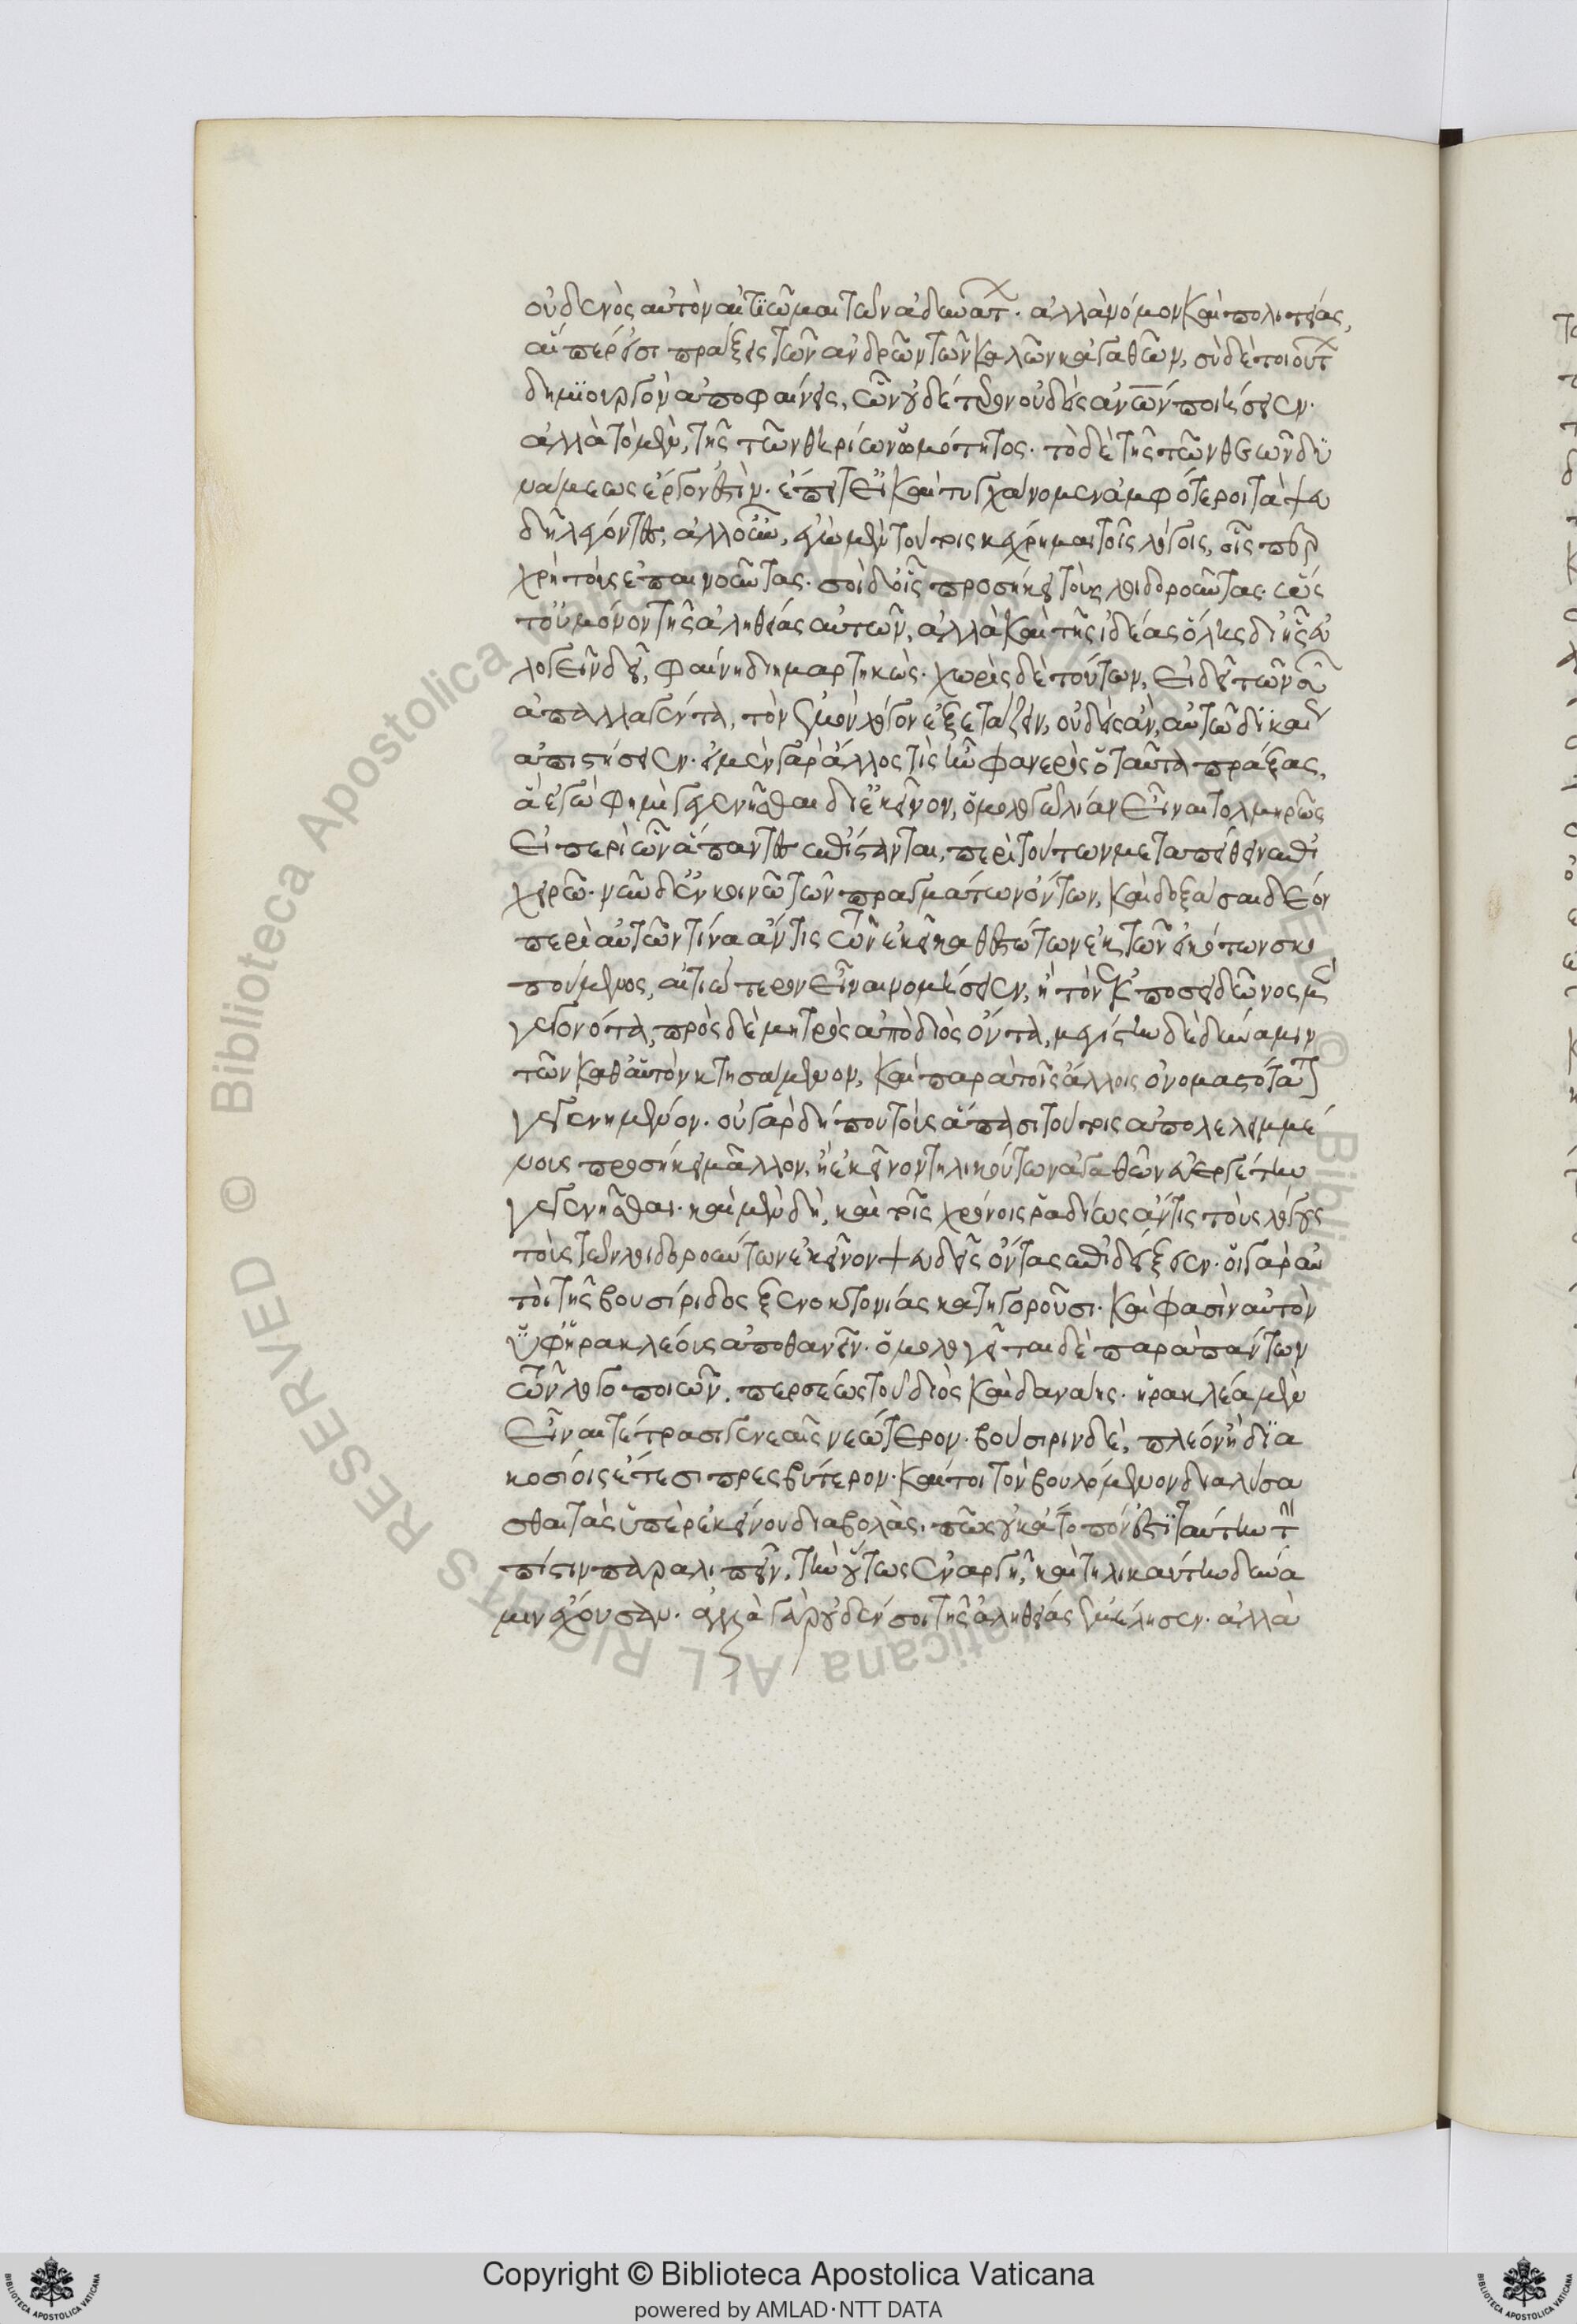 οὐδενὸς αὐτὸν αἰτιῶμαι τῶν ἀδυνάτ. ἀλλὰ νόμον καὶ πολιτείας,
αἵπέρ εἰσι πράξεις τῶν ἀνδρῶν τῶν καλῶν κἀγαθῶν, σὺ δὲ τοιούτ
δημιουργὸν ἀποφαίνεις, ὧν οὐδέτερον οὐδεὶς ἂν ἀνων ποιήσειεν.
ἀλλὰ τὸ μὲν, τῆς τῶν θηρίων ὠμότητος. τὸ δὲ τῆς τῶν θεῶν δυ
νάμεως ἔργον ἐστίν. ἔπειτ εἰ καὶ τυγχάνομεν ἀμφότεροι τὰ ψευ
δῆ λέγοντες, ἀλλ οὖν, ἐγὼ μὲν τούτοις κέχρημαι τοῖς λόγοις, οἷς περ
χρὴ τοὺς ἐπαινοῦντας. σοὶ δ οἷς προσήκει τοὺς λοιδοροῦντας. ὥς
τ οὐ μόνον τῆς ἀληθείας αὐτῶν, ἀλλὰ καὶ τῆς ἰδέας ὅλης δι ἧς εὐ
λογεῖν δεῖ, φαίνῃ διημαρτηκώς. χωρὶς δὲ τούτων, εἰ δεῖ τῶν σῶν
ἀπαλλαγέντα, τὸν ἐμὸν λόγον ἐξετάζειν, οὐδεὶς ἂν, αὐτῶ δικαί
ἐπιτιμήσειεν. εἰ μὲν γὰρ ἄλλος τις ἦν φανερὸς ὁ ταῦτα πράξας,
ἃ ἐγώ φημι γεγενῆσθαι δι ἐκεῖνον, ὁμολογῶ λίαν εἶναι τολμηρῶς
εἰ περὶ ὧν ἅπαντες ἐπίστανται, περὶ τούτων μεταπείθειν ἐπι
χειρῶ. νῦν δ ἐν κοινῶ τῶν πραγμάτων ὄντων, καὶ δοξάσαι δέον
περὶ αὐτῶν τίνα ἄν τις τῶν ἐκεῖ καθεστώτων ἐκ τῶν εἰκότων σκο
πούμενος, αἰτιώτερον εἶναι νομίσειεν, ἢ τὸν ἐκ ποσειδῶνος μὲν
γεγονότα, πρὸς δὲ μητρὸς ἀπὸ διὸς ὄντα, μεγίστην δὲ δύναμιν
τῶν καθ αὑτὸν κτησάμενον, καὶ παρὰ τοῖς ἄλλοις ὀνομαστότατ
γεγενημένον. οὐ γὰρ δήπου τοὺς ἅπασι τούτοις ἀπολελειμμέ
νους προσήκει μᾶλλον, ἢ ἐκεῖνον τηλικούτων ἀγαθῶν εὐεργέτην
γεγενῆσθαι. καὶ μὲν δὴ, καὶ τοῖς χρόνοις ῥαδίως ἄν τις τοὺς λόγους
τοὺς τῶν λοιδορούντων ἐκεῖνον ψευδεῖς ὄντας ἐπιδείξειεν. οἱ γὰρ αὐ
τοὶ τῆς βουσίριδος ξενοκτονίας κατηγοροῦσι. καὶ φασὶν αὐτὸν
ὑφ ἡρακλέους ἀποθανεῖν. ὁμολογεῖται δὲ παρὰ πάντων
τῶν λογοποιῶν, περσέως τοῦ διὸς καὶ δανάης. ἡρακλέα μὲν
εἶναι τέτρασι γενεαῖς νεώτερον. βούσιριν δὲ, πλέον ἢ δια
κοσίοις ἔτεσι πρεσβύτερον. καίτοι τὸν βουλόμενον διαλύσα
σθαι τὰς ὑπὲρ ἐκείνου διαβολὰς. πῶς οὐκ ἄτοπόν ἐστι ταύτην τὴν
πίστιν παραλιπεῖν, τὴν οὕτως ἐναργῆ, καὶ τηλικαύτην δύνα
μιν ἔχουσαν. ἀλλὰ γὰρ οὐδέν σοι τῆς ἀληθείας ἐμέλησεν. ἀλλὰ
Copyright © Biblioteca Apostolica Vaticana
powered by AMLAD·NTT DATA